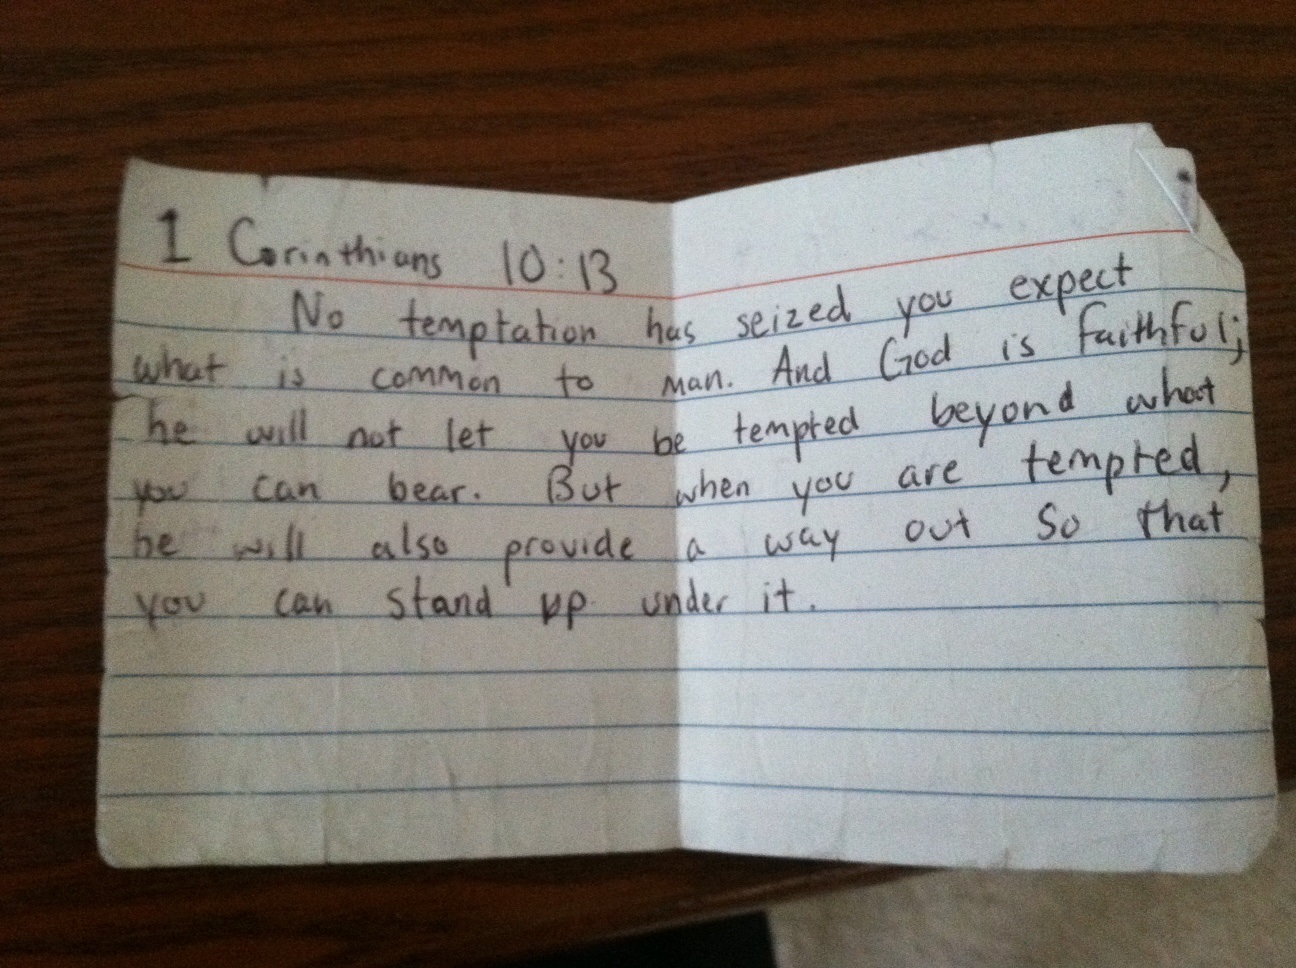 1 Corinthians 10:13
No temptation has seized you expect
what is common to man. And God is faithful;
he will not let you be tempted beyond what
you can bear. But when you are tempted,
he will also provide a way out so that
you can stand up under it.